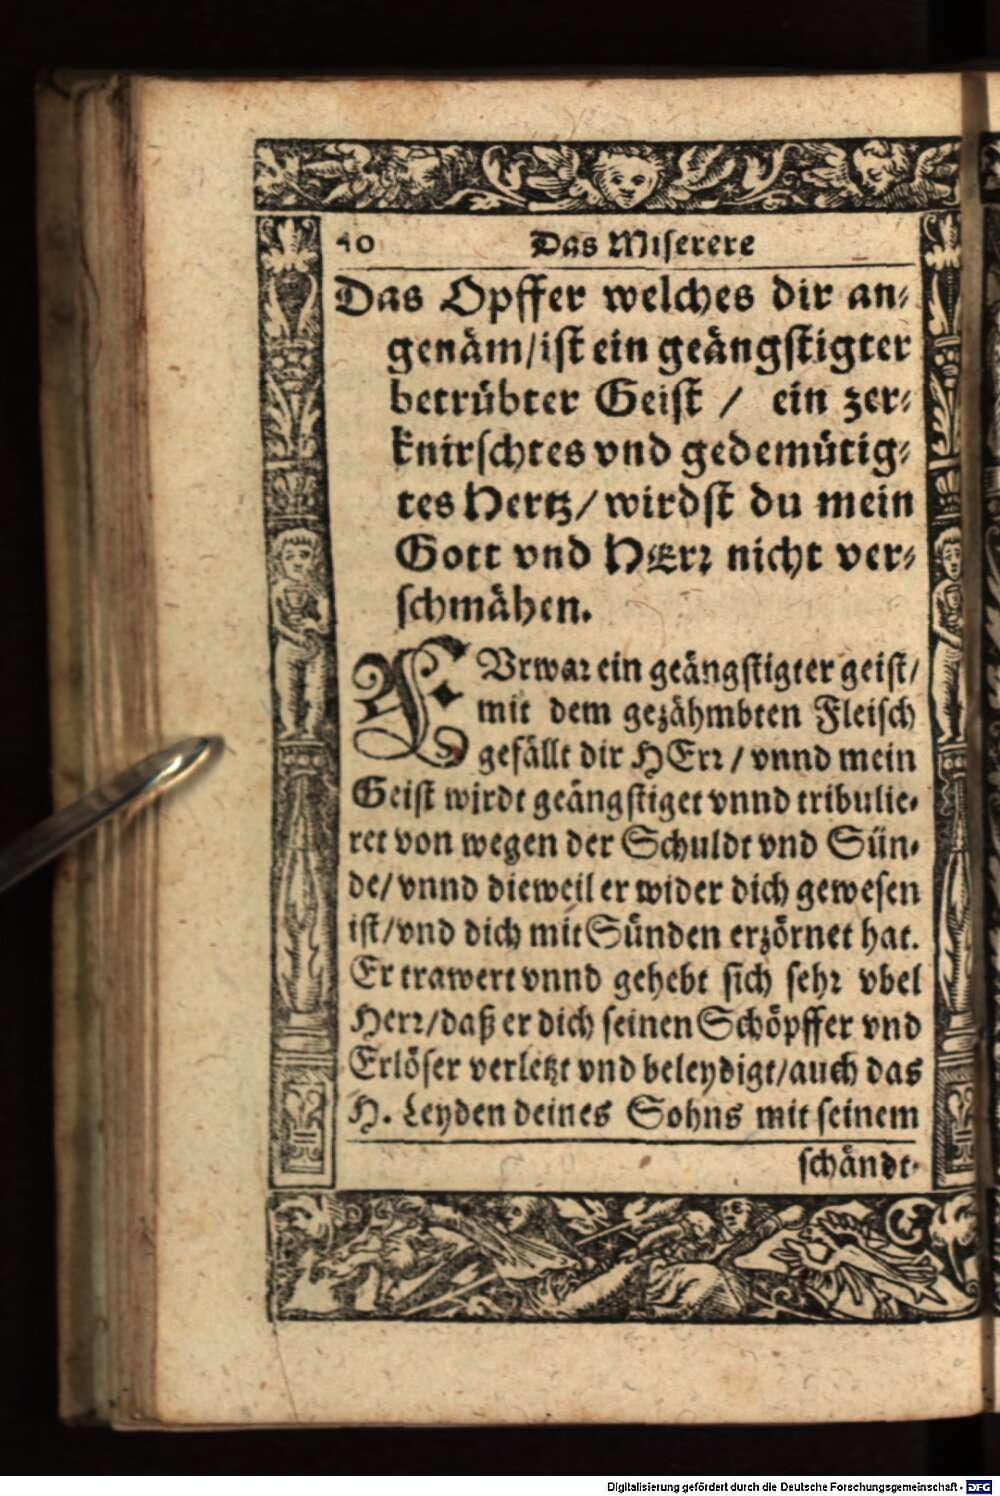 40 Das Miserere
Das Opffer welches dir an⸗
genäm/ist ein geängstigter
betrübter Geist / ein zer⸗
knirschtes vnd gedemütig⸗
tes Hertz/wirdst du mein
Gott vnd HErr nicht ver⸗
schmähen.
FVrwar ein geängstigter geist/
mit dem gezähmbten Fleisch
gefällt dir HErr / vnnd mein
Geist wirdt geängstiget vnnd tribulie⸗
ret von wegen der Schuldt vnd Sün⸗
de/ vnnd dieweil er wider dich gewesen
ist/vnd dich mit Sünden erzörnet hat.
Er trawert vnnd gehebt sich sehr vbel
Herr/daß er dich seinen Schöpffer vnd
Erlöser verletzt vnd beleydigt/auch das
H. Leyden deines Sohns mit seinem
schändt⸗
Digitalisierung gefördert durch die Deutsche Forschungsgemeinschaft - DFG